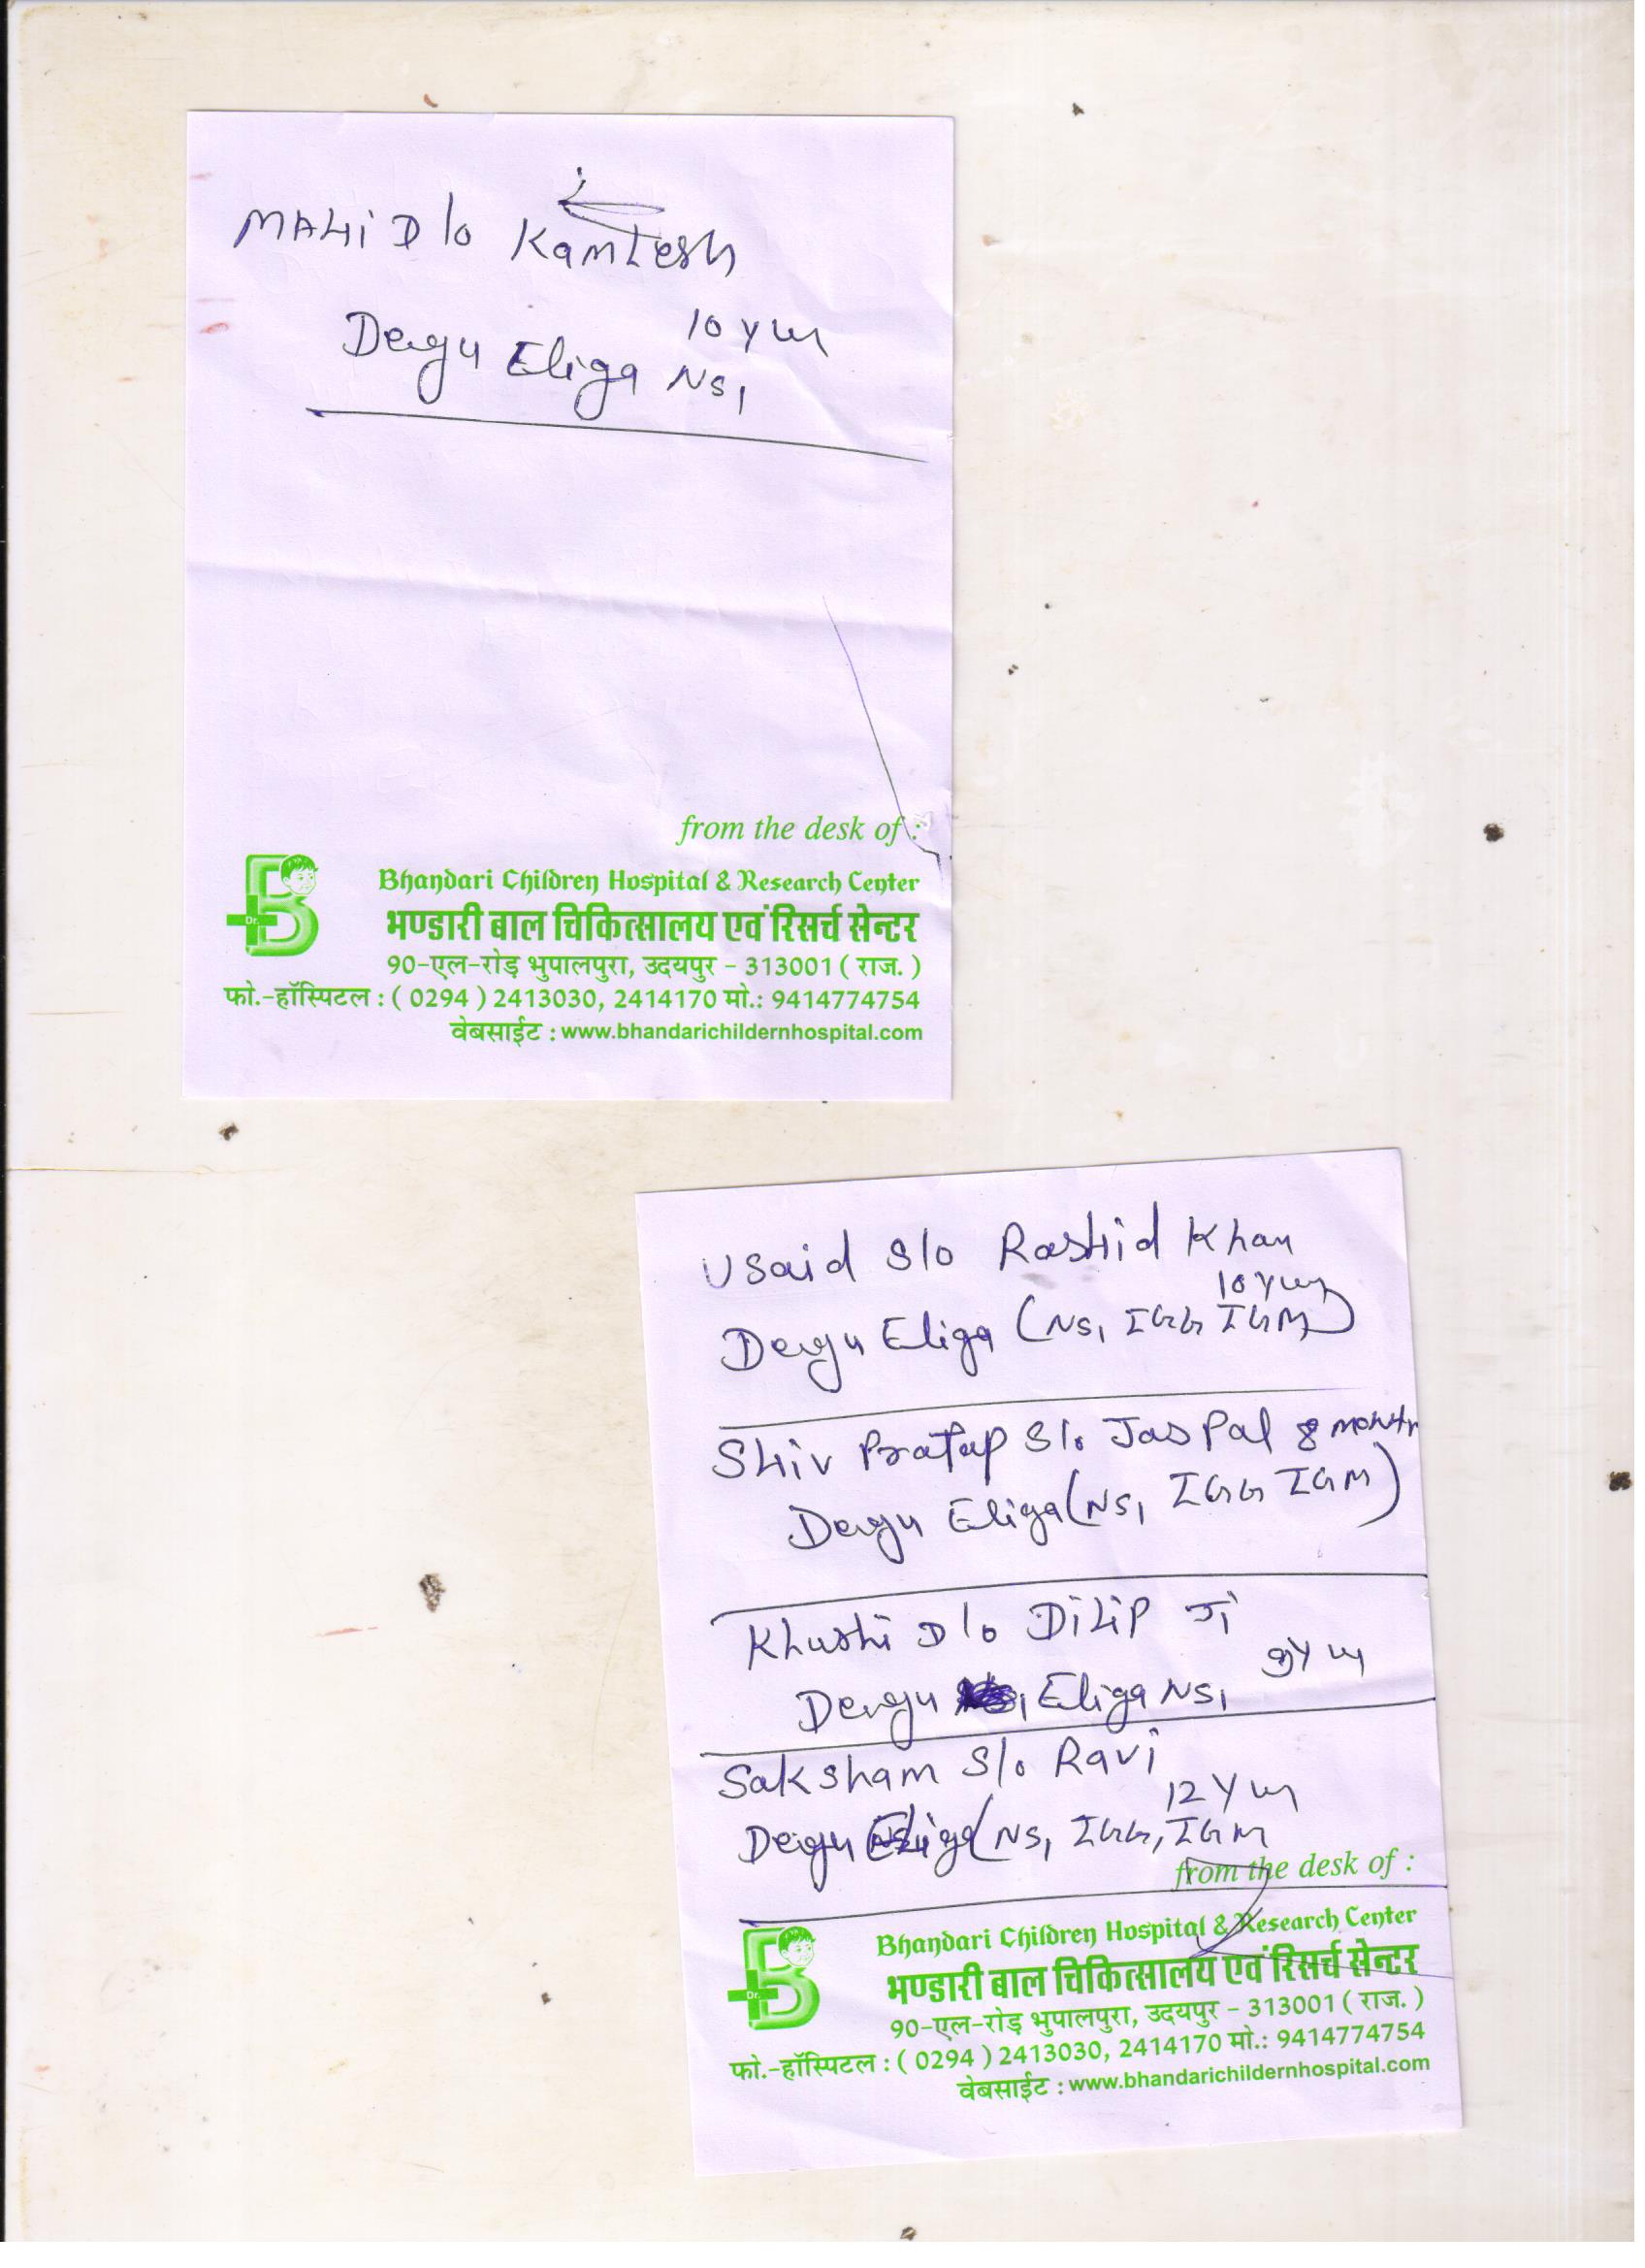 MAHi D/o Kamlesh
10 Yrs
Dengu Eliga NS1
from the desk of :
Dr.
Bhandari Children Hospital & Research Center
भण्डारी बाल चिकित्सालय एवं रिसर्च सेन्टर
90-एल-रोड़ भुपालपुरा, उदयपुर - 313001 ( राज. )
फो.-हॉस्पिटल : ( 0294 ) 2413030, 2414170 मो.: 9414774754
वेबसाईट : www.bhandarichildernhospital.com
Usaid S/o Rashid Khan
10 Yrs
Dengu Eliga (NS1 IGG IGM)
Shiv Pratap S/o Jaspal 8 month
Dengu Eliga (NS1 IGG IGM)
Khushi D/o Dilip Ji
9 Yrs
Dengu Eliga NS1
Saksham S/o Ravi
12 Yrs
Dengu Eliga (NS1 IGG, IGM
from the desk of :
Dr.
Bhandari Children Hospital & Research Center
भण्डारी बाल चिकित्सालय एवं रिसर्च सेन्टर
90-एल-रोड़ भुपालपुरा, उदयपुर - 313001 ( राज. )
फो.-हॉस्पिटल : ( 0294 ) 2413030, 2414170 मो.: 9414774754
वेबसाईट : www.bhandarichildernhospital.com